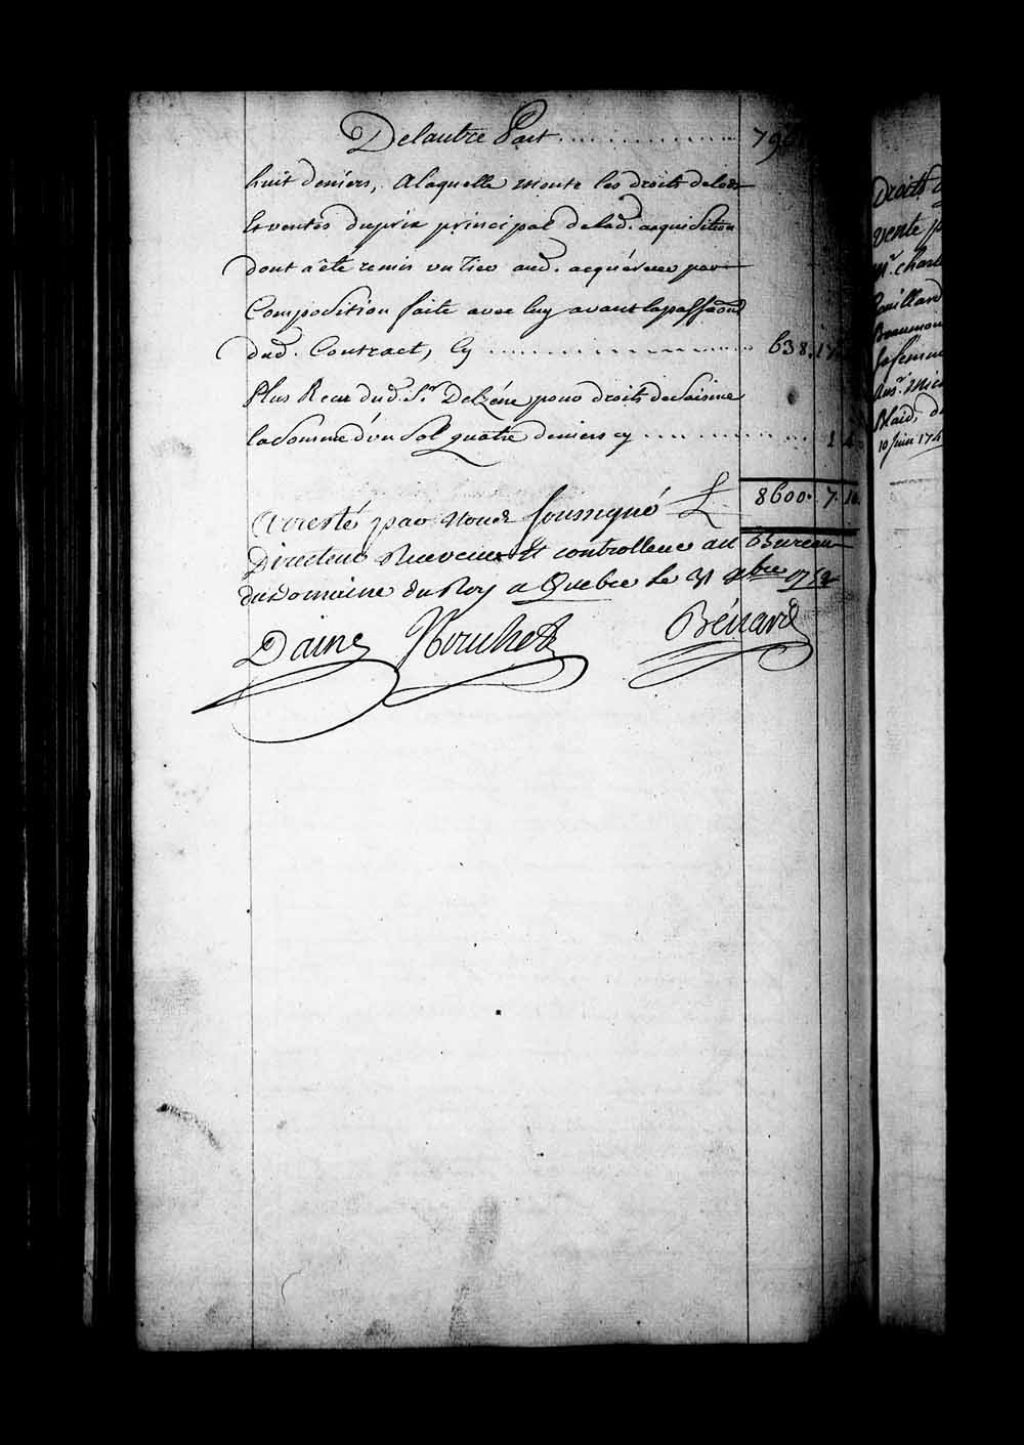 Delautre Part ............... 796
huit deniers, Alaquelle monte les droits delods
Et ventes duprix principal delad. acquisition
dont a été remis un tiers aud. acquéreur par
Composition faite avec luy avant lapassaon
dud. Contract, Cy ............... 638. 17
Plus Receu dud. Sr. Delzéne pour droits de Saisine
lasomme d'un Sol quatre deniers cy ............... 1 4
8600. 7. 10.
Arresté par Nous soussigné
Directeur Receveur Et controlleur au Bureau
du Domaine du Roy a Quebec Le 31 xbre
Daine Bénard
Droits d
vente p
Mr. Charl
Couillard
Beaumon
sa femme
Aus. Mic
Blaid, d
10 Juin 174